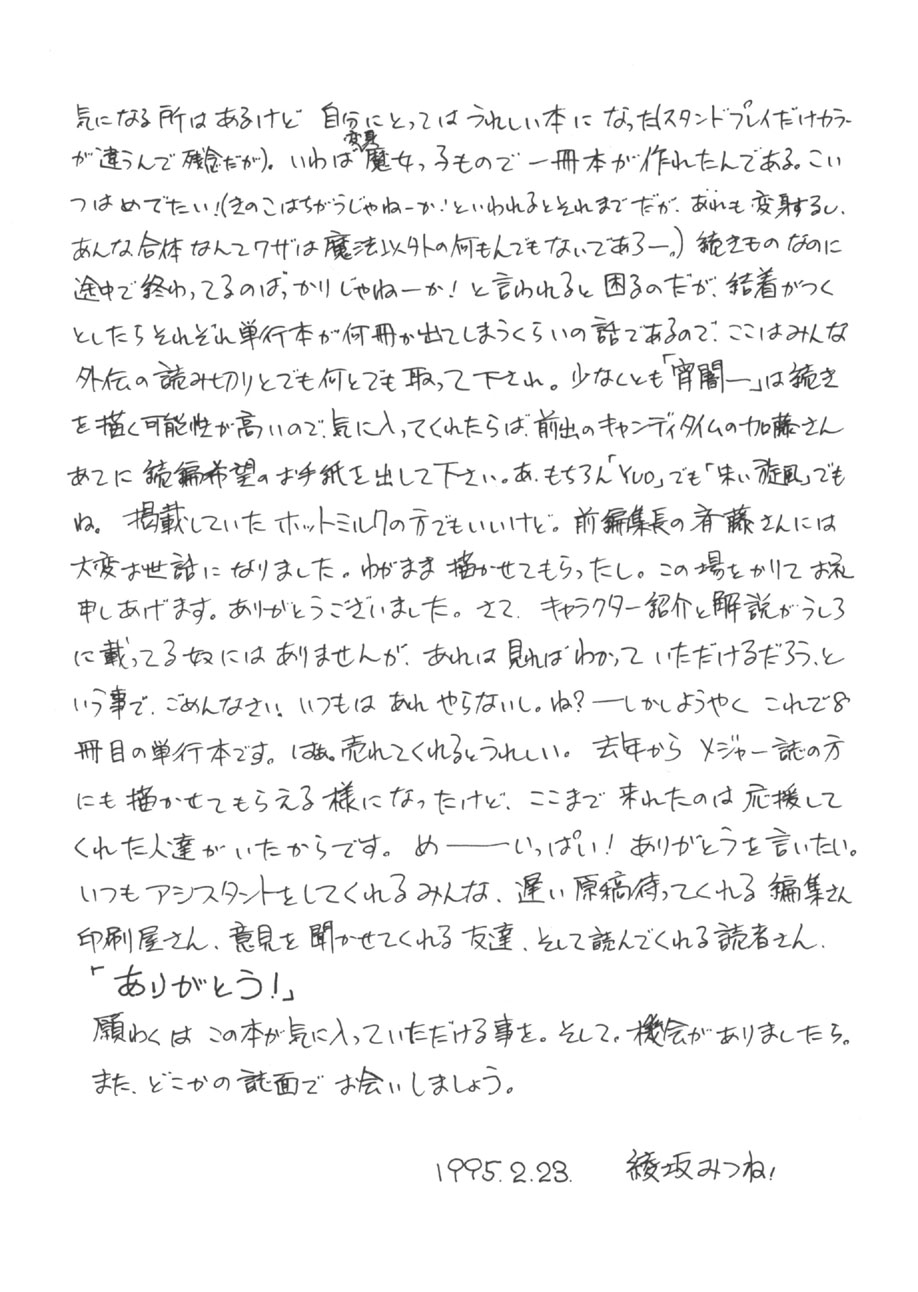 気になる所はあるけど 自分にとってはうれしい本になった(スタンドプレイだけカラー
が違うんで残念だが)。いわば変身魔女っ子もので一冊本が作れたんである。こい
つはめでたい!(きのこはちがうじゃねーか!といわれるとそれまでだが、あれも変身するし、
あんな合体なんてワザは魔法以外の何もんでもないであろー。)続きものなのに
途中で終わってるのばっかりじゃねーか!と言われると困るのだが、結着がつく
としたらそれぞれ単行本が何冊か出てしまうくらいの話であるので、ここはみんな
外伝の読み切りとでも何とでも取って下され。少なくとも「宵闇ー」は続き
を描く可能性が高いので、気に入ってくれたらば、前出のキャンディタイムの加藤さん
あてに続編希望のお手紙を出して下さい。あ、もちろん「YUO」でも「朱い旋風」でも
ね。掲載していたホットミルクの方でもいいけど。前編集長の斉藤さんには
大変お世話になりました。わがまま描かせてもらったし。この場をかりてお礼
申しあげます。ありがとうございました。さて、キャラクター紹介と解説がうしろ
に載ってる奴にはありませんが、あれは見ればわかっていただけるだろう、と
いう事で、ごめんなさい。いつもはあれやらないし。ね?―しかしようやくこれで8
冊目の単行本です。はぁ。売れてくれるとうれしい。去年からメジャー誌の方
にも描かせてもらえる様になったけど、ここまで来れたのは応援して
くれた人達がいたからです。め――いっぱい!ありがとうを言いたい。
いつもアシスタントをしてくれるみんな、遅い原稿待ってくれる編集さん
印刷屋さん、意見を聞かせてくれる友達、そして読んでくれる読者さん、
「ありがとう!」
願わくはこの本が気に入っていただける事を。そして。機会がありましたら。
また、どこかの誌面でお会いしましょう。
1995.2.23. 綾坂みつね!